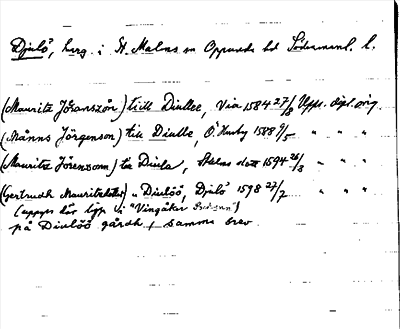 Djulö, herrg. i St. Malms sn Oppunda hd Södermanl. l.
(Mauritz Jöranszån) till Diullee, Via 1584 27/8 Upps. dipl. orig.
(Månns Jörgenson) till Diulle, Ö. Husby 1588 9/5 " " "
(Mauritz Jörenzonn) til Diula, 1594 26/8 " " "
(Gertrudh Mauritzdotter) " Diulöö, Djulö 1598 27/7 " " "
(uppges där ligga i "Vingåker Sochnn")
på Diulöö gårdh, samma brev